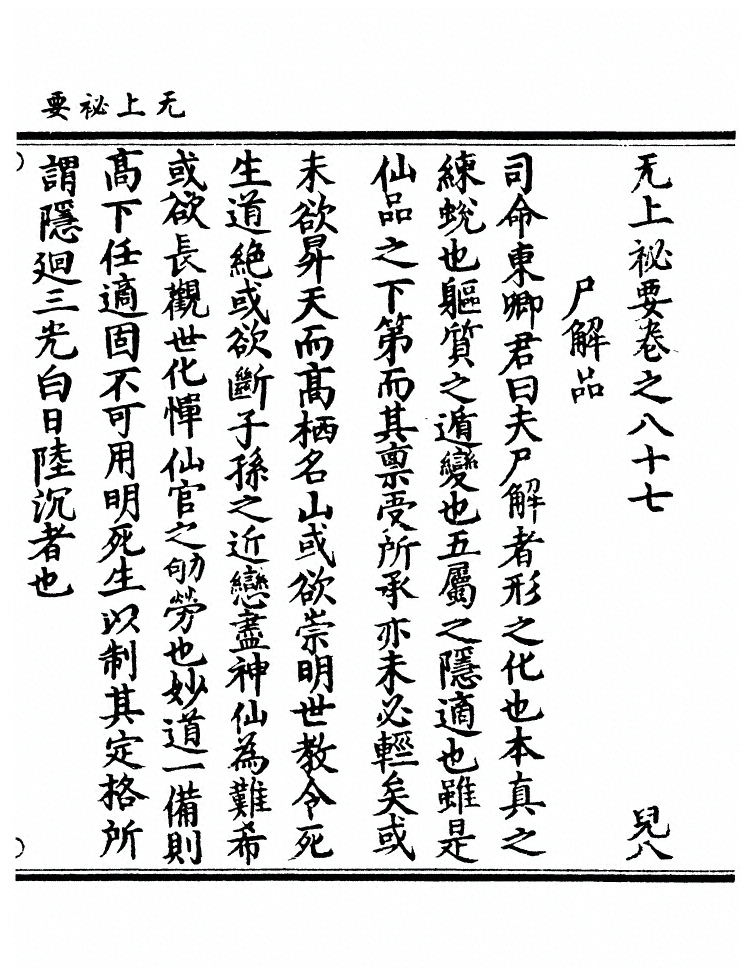 无上祕要
无上祕要卷之八十七
兒八
尸解品
司命東卿君曰夫尸解者形之化也本真之
練蛻也軀質之遁變也五屬之隱適也雖是
仙品之下第而其禀受所承亦未必輕矣或
未欲昇天而髙栖名山或欲崇明世教令死
生道絶或欲斷子孫之近戀盡神仙為難希
或欲長觀世化憚仙官之劬勞也妙道一備則
髙下任適固不可用明死生以制其定格所
謂隱廻三光白日陸沉者也